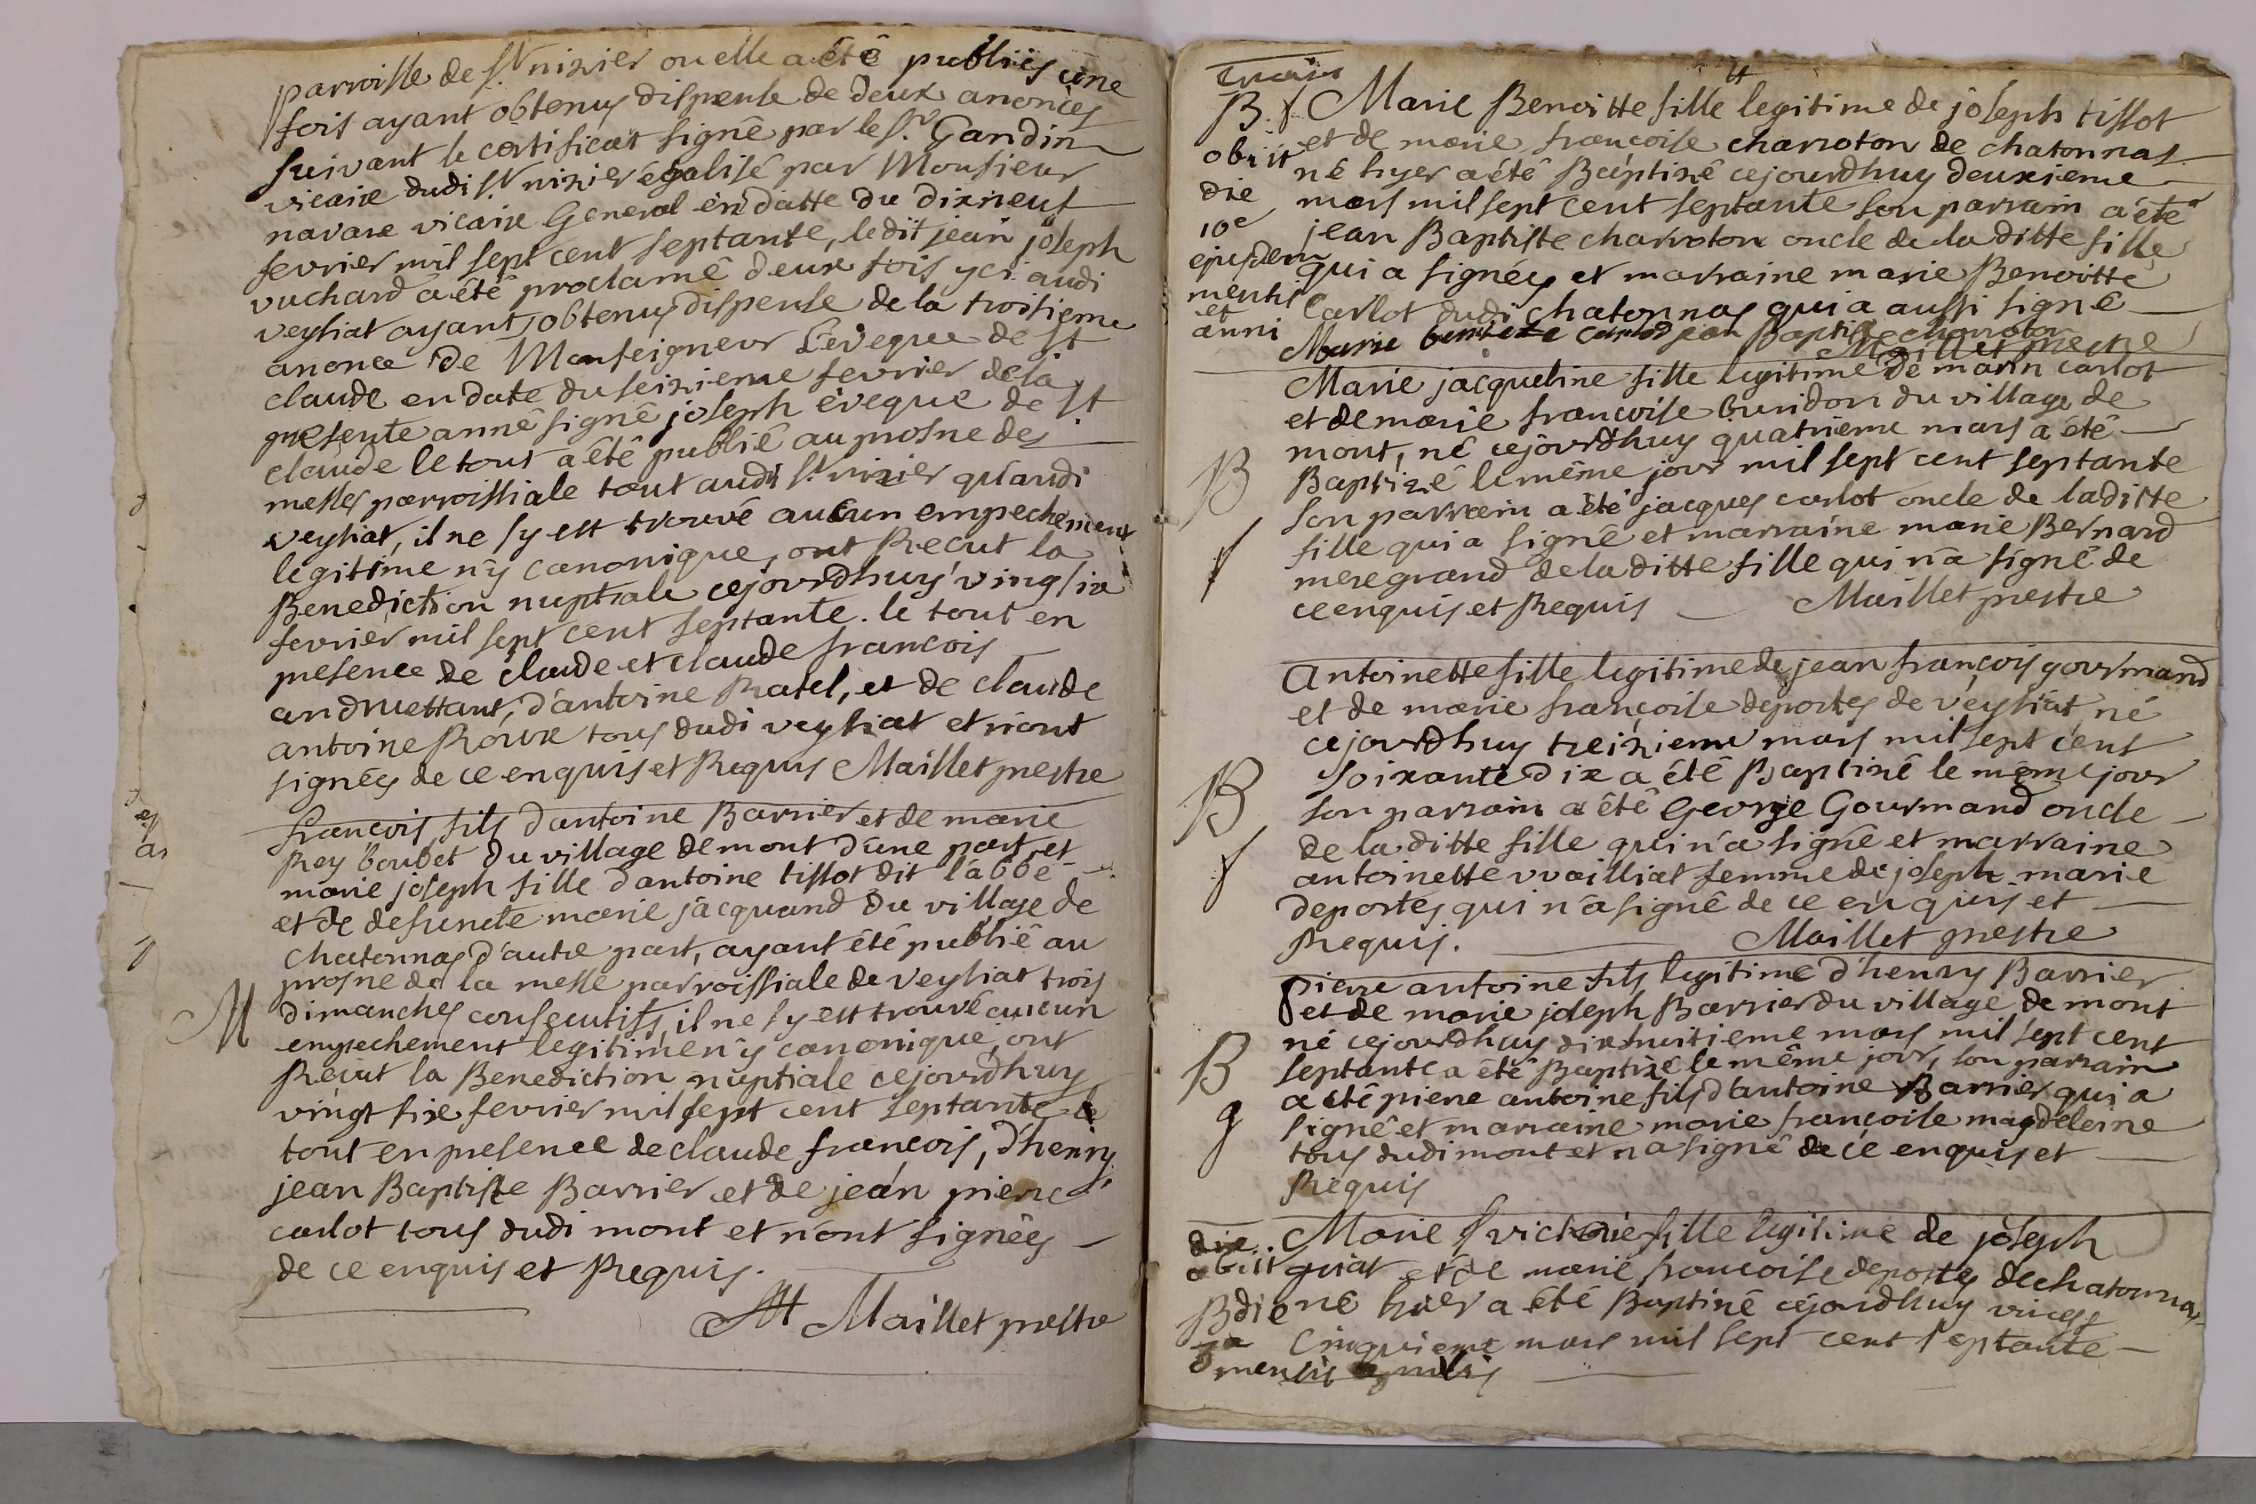 parroisse de St nizier ou elle a été publiés une
fois ayant obtenus dispense de deux anonces
suivant le certificat signé par le Sr. Gandin
vicaire dudi St nizier égalisé par Monsieur
navare vicaire General en datte du dixneuf
fevrier mil sept cent septante, ledit jean joseph
vuchard a été proclamé deux fois yci audi
veysiat ayant obtenus dispense de la troisieme
anonce de Monseigneur L'eveque de st
claude en date du seizieme fevrier de la
presente anné signé joseph éveque de st
claude le tout a été publié au prosne des
messes parroissiale tout audi St. nizier qu'audi
veysiat, il ne sy est trouvé aucun empechement
legitime n'y canonique, ont Recut la
Benediction nuptiale cejourdhuy vingsix
fevrier mil sept cent septante. le tout en
presence de claude et claude francois
andruettant, d'antoine Ratel, et de claude
antoine Roux tous dudi veysiat et n'ont
signés de ce enquis et Requis Maillet prestre
francois fils d'antoine Barrier et de marie
Rey boubet du village de mont d'une part et
marie joseph fille d'antoine tissot dit l'abbé
et de defuncte marie jacquand du village de
chatonnas d'autre part, ayant été publié au
prosne de la messe parroissiale de veysiat trois
M dimanches consecutifs, il ne sy est trouvé aucun
empechement legitime n'y canonique, ont
Reçut la Benediction nuptiale cejourdhuy
vingt sixe fevrier mil sept cent septante le
tout en presence de claude francois, d'henry
jean Baptiste Barrier et de jean pierre
carlot tous dudi mont et n'ont signées
de ce enquis et Requis.
Maillet prestre
B. f Marie Benoitte fille legitime de joseph tissot
et de marie francoise charroton de chatonnas
obiit né hyer a été Baptizé cejourdhuy deuxieme
die mars mil sept cent septante son parrain a été
10e jean Baptiste charroton oncle de la ditte fille
ejusdem qui a signés et marraine marie Benoitte
mensis Carlot dudi chatonnas qui a aussi signé
et
anni Marie benoite carlod jean Baptiste charroton
Maillet prestre
Marie jacqueline fille legitime de marin carlot
et de marie francoise buridon du village de
mont, né cejourdhuy quatrieme mars a été
B Baptizé le même jour mil sept cent septante
son parrain a été jacques carlot oncle de laditte
fille qui a signé et marraine marie Bernard
f mere grand de la ditte fille qui n'a signé de
ce enquis et Requis Maillet prestre
antoinette fille legitime de jean françois gourmand
et de marie françoise deportes de veysiat né
cejourdhuy treizieme mars mil sept cent
B soixante dix a été Baptizé le même jour
son parrain a été George Gourmand oncle
de la ditte fille qui n'a signé et marraine
f antoinette vvailliat femme de joseph marie
deportes qui n'a signé de ce enquis et
Requis. Maillet prestre
pierre antoine fils legitime d'henry Barrier
et de marie joseph Barrier du village de mont
né cejourdhuy dixhuitieme mars mil sept cent
B septante a été Baptizé le même jour, son parrain
a été pierre antoine fils d'antoine Barrier qui a
g signé et marraine marie francoise magdeleine
tous dudi mont et n'a signé de ce enquis et
Requis
Marie victoire fille legitime de joseph
obiit guiat et de marie francoise deportes de chatonnas
B die né hier a été Baptizé cejourdhuy vingt
cinquieme mars mil sept cent septante
mensis